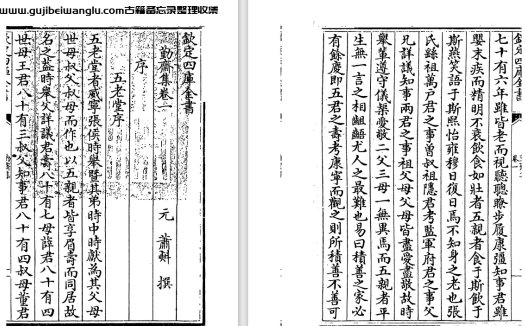 www.gujibeiwanglu.com古籍备忘录整理收集
欽定四庫全書
勤齋集卷一
元 蕭㪺 撰
序
五老堂序
五老堂者咸寧張侯時舉暨其弟時中時獻為其父母
世母叔父叔母而作也以五親者皆享眉壽而同居故
名之蓋時舉父詳議君壽八十有七母薛君八十有四
世母王君八十有三叔父知事君八十有四叔母董君
欽定四庫全書
七十有六年雖皆老而視聽聰瞭步履康彊知事君雖
嬰末疾而精明不衰飲食如壯者五親者食于斯飲于
斯燕笑語于斯熙怡雍穆日復日焉不知身之老也張
氏繇祖萬户君之事曾叔祖隱君考監軍府君之事父
兄詳議知事兩君之事祖父母父母皆盡愛盡敬故時
舉輩遵守儀榘愛敬二父三母一無異焉而五親者平
生無一言之相齟齬尤人之最難也易曰積善之家必
有餘慶即五君之壽考康寧而觀之則所積善不善可